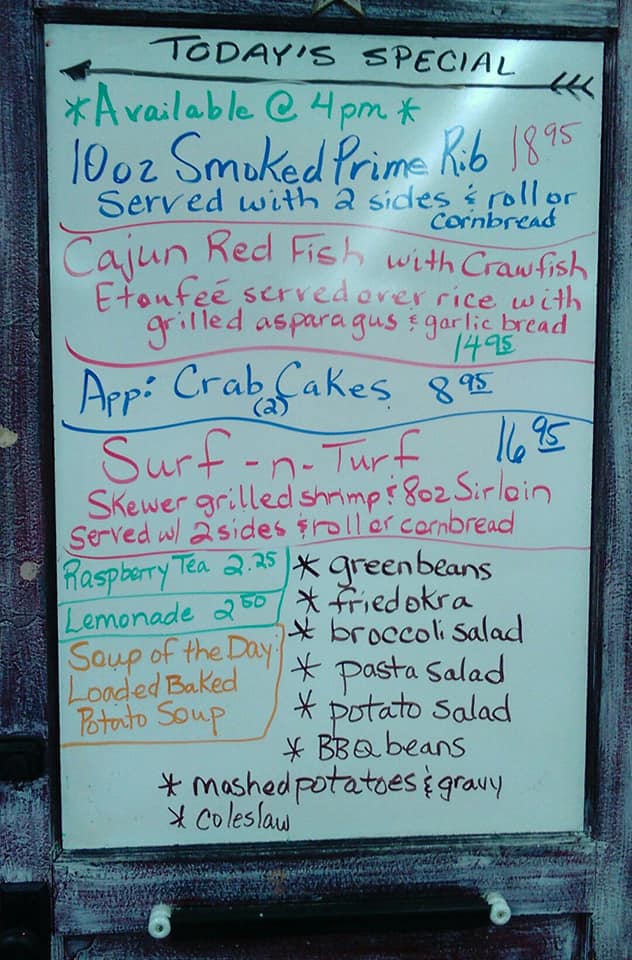 TODAY'S SPECIAL
*Available @ 4pm *
10oz Smoked Prime Rib 18 95
Served with 2 sides & roll or
cornbread
Cajun Red Fish with Crawfish
Etoufeé served over rice with
grilled asparagus & garlic bread
14 95
App: Crab Cakes 8 95
(2)
Surf-n-Turf 16 95
Skewer grilled shrimp & 8oz Sirloin
Served w/ 2 sides & roll or cornbread
Raspberry Tea 2.25
Lemonade 2 50
Soup of the Day:
Loaded Baked
Potato Soup
* green beans
* fried okra
* broccoli salad
* pasta salad
* potato salad
* BBQ beans
* mashed potatoes & gravy
* coleslaw